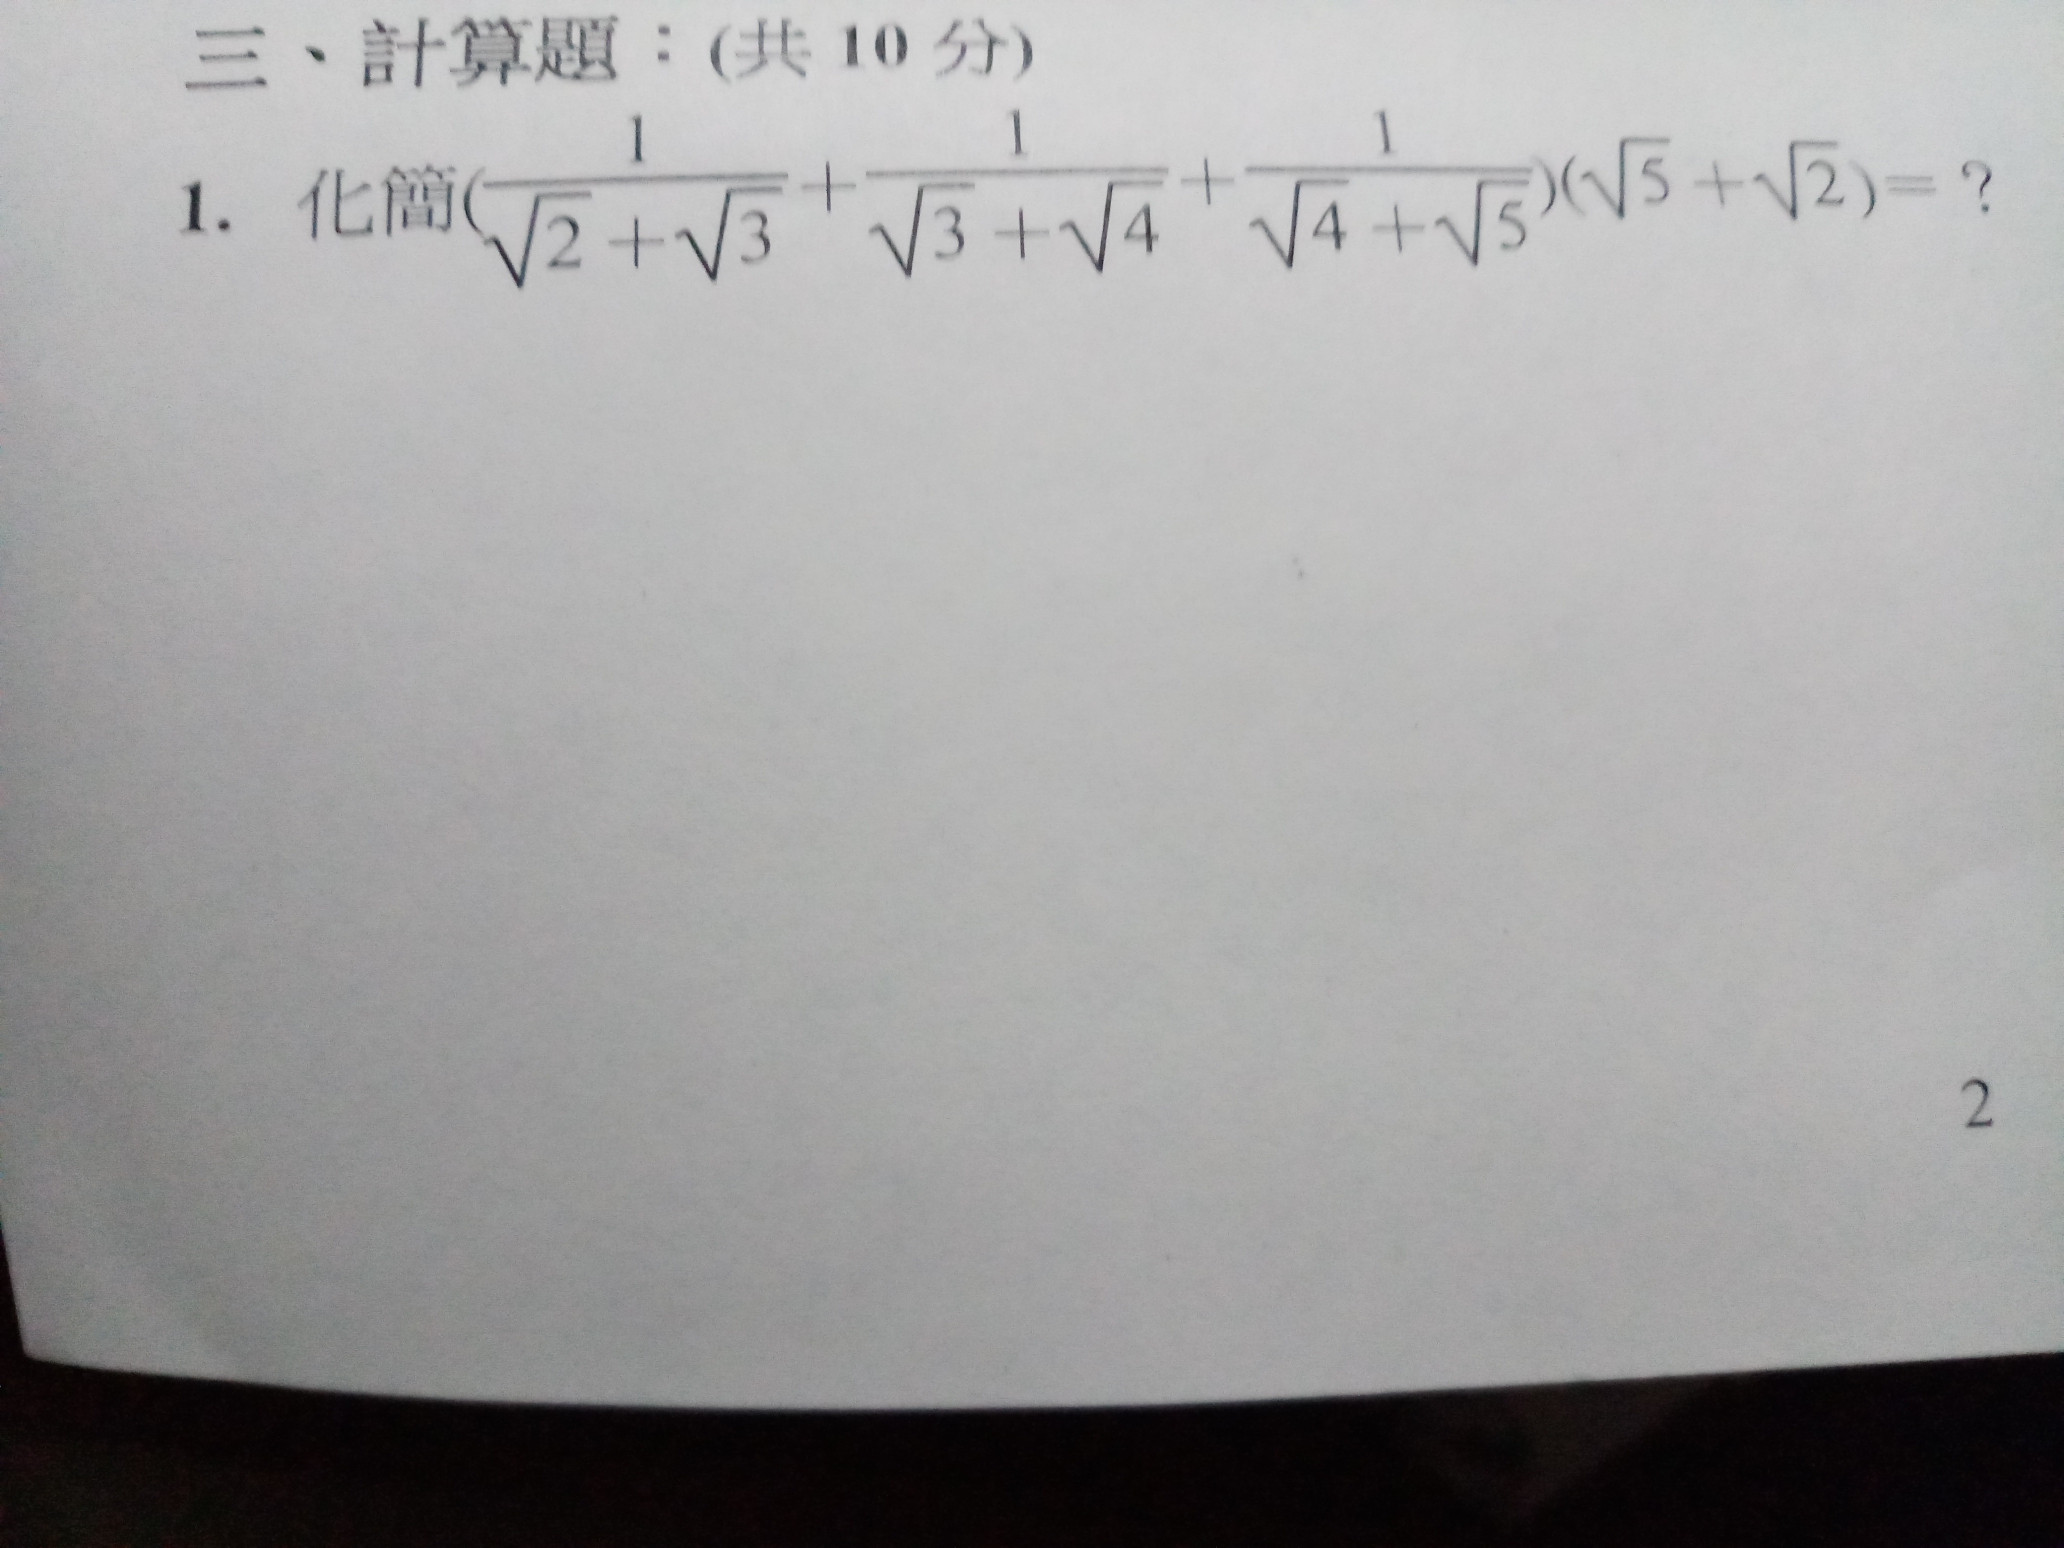 三、計算題：(共 10 分)
1. 化簡(1/(√2+√3)+1/(√3+√4)+1/(√4+√5))(√5+√2)=？
2